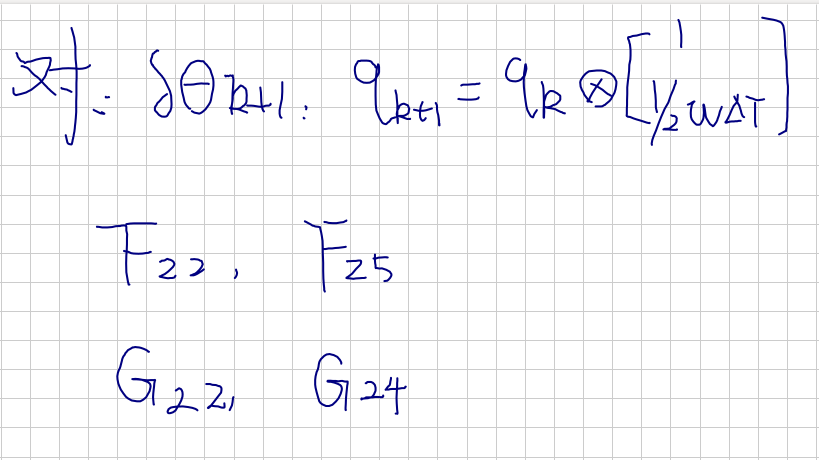 对: δθk+1: qk+1 = qk ⊗ [1 1/2 wΔT]
F22, F25
G22, G24